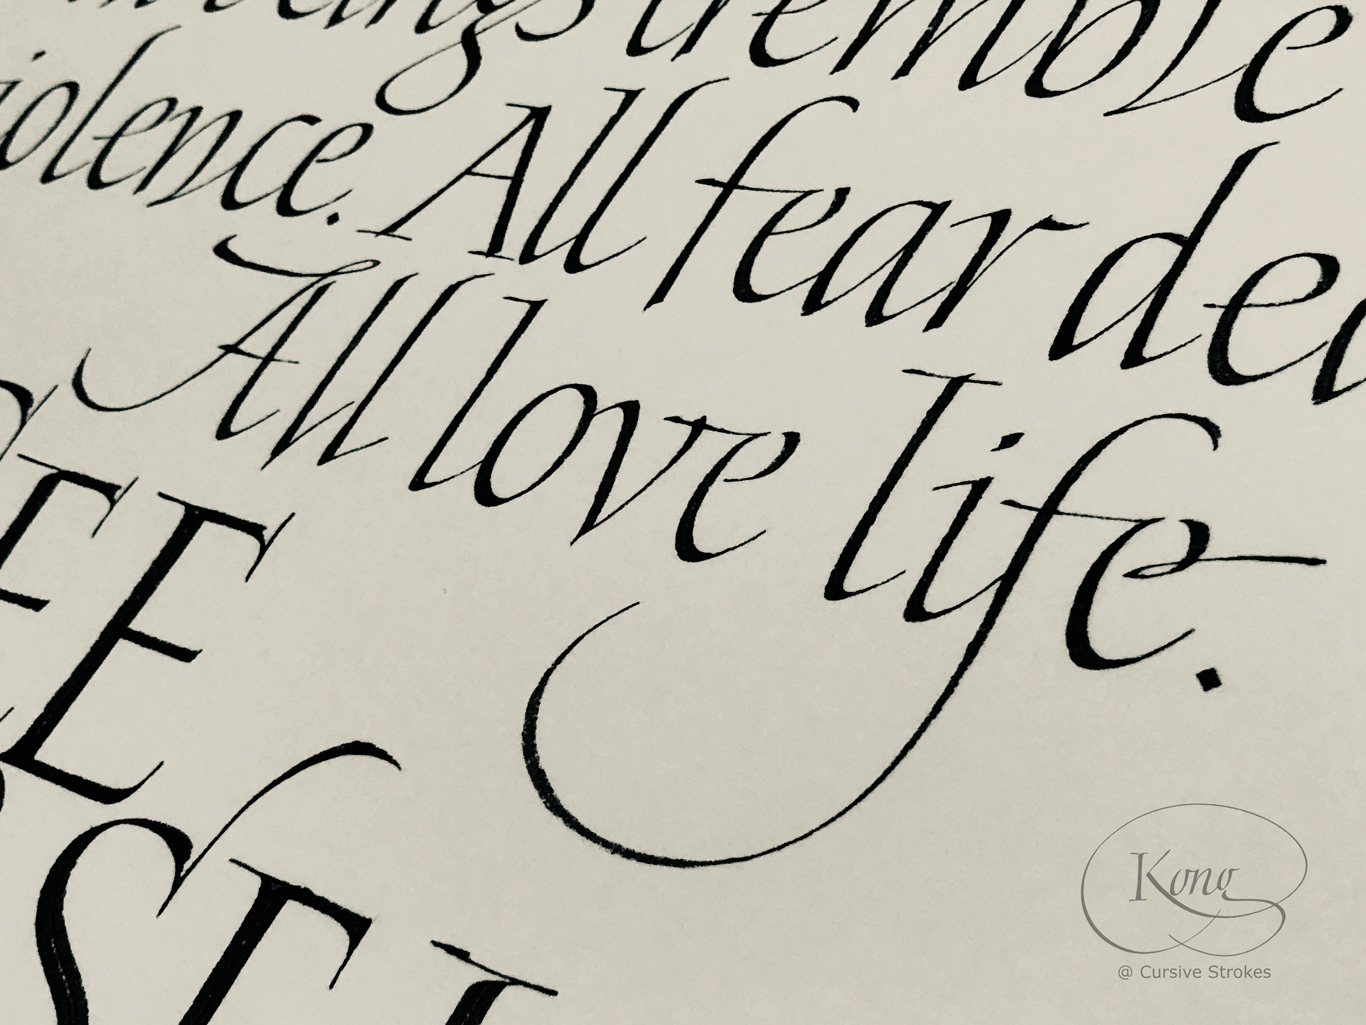 beings tremble
violence. All fear dea
All love life.
Kong
@ Cursive Strokes